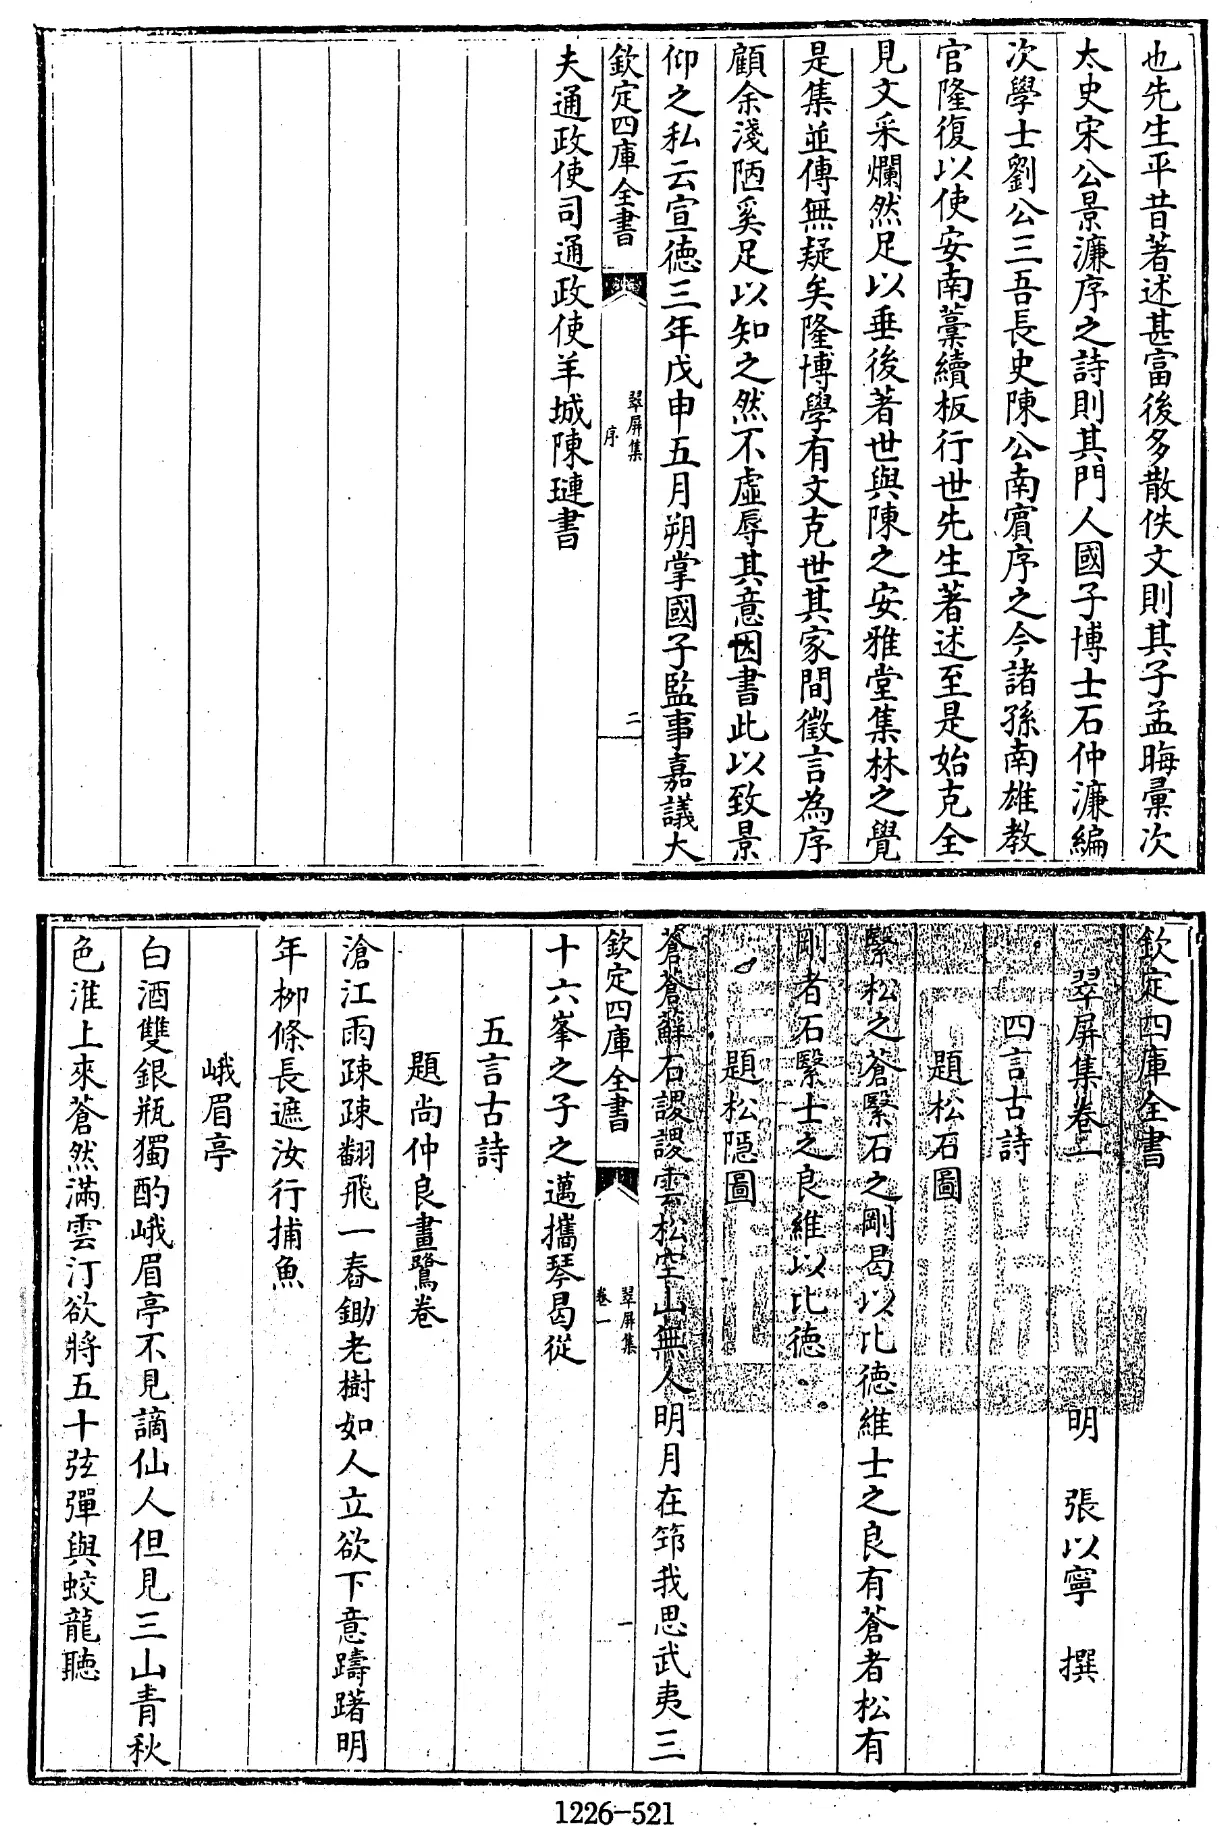 也先生平昔著述甚富後多散佚文則其子孟晦彚次
太史宋公景濂序之詩則其門人國子博士石仲濂編
次學士劉公三吾長史陳公南賔序之今諸孫南雄教
官隆復以使安南藁續板行世先生著述至是始克全
見文采爛然足以垂後著世與陳之安雅堂集林之覺
是集並傳無疑矣隆博學有文克世其家間徵言為序
顧余淺陋奚足以知之然不虛辱其意因書此以致景
仰之私云宣徳三年戊申五月朔掌國子監事嘉議大
欽定四庫全書
翠屏集
序
二
夫通政使司通政使羊城陳璉書
欽定四庫全書
翠屏集卷一
明 張以寧 撰
四言古詩
題松石圖
繄松之蒼繄石之剛曷以比徳維士之良有蒼者松有
剛者石繄士之良維以比徳
題松隠圖
蒼蒼蘚石謖謖雲松空山無人明月在筇我思武夷三
欽定四庫全書
翠屏集
卷一
一
十六峯之子之邁攜琴曷從
五言古詩
題尚仲良畫鷺卷
滄江雨疎疎翻飛一舂鋤老樹如人立欲下意躊躇明
年栁條長遮汝行捕魚
峨眉亭
白酒雙銀瓶獨酌峨眉亭不見謫仙人但見三山青秋
色淮上來蒼然滿雲汀欲將五十弦彈與蛟龍聽
1226-521